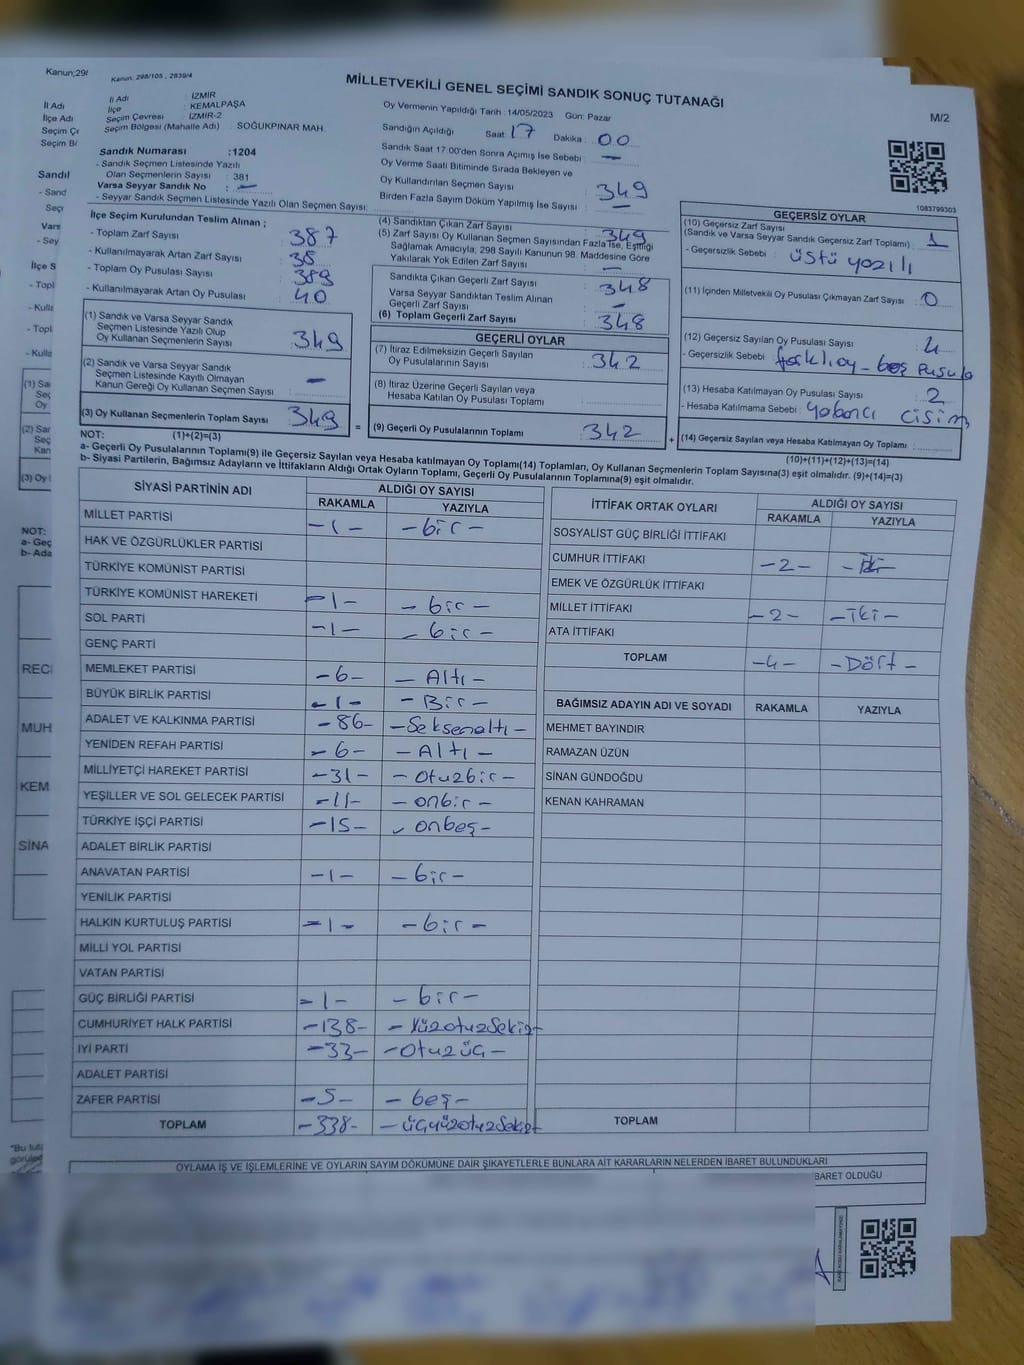 Kanun: 298/105 , 2839/4
MİLLETVEKİLİ GENEL SEÇİMİ SANDIK SONUÇ TUTANAĞI
M/2
İl Adı : İZMİR
İlçe : KEMALPAŞA
Seçim Çevresi : İZMİR-2
Seçim Bölgesi (Mahalle Adı) : SOĞUKPINAR MAH.
Sandık Numarası :1204
- Sandık Seçmen Listesinde Yazılı
Olan Seçmenlerin Sayısı : 381
Varsa Seyyar Sandık No : —
- Seyyar Sandık Seçmen Listesinde Yazılı Olan Seçmen Sayısı:
Oy Vermenin Yapıldığı Tarih : 14/05/2023 Gün: Pazar
Sandığın Açıldığı Saat 17 Dakika : 00
Sandık Saat 17:00'den Sonra Açımış İse Sebebi : —
Oy Verme Saati Bitiminde Sırada Bekleyen ve
Oy Kullandırılan Seçmen Sayısı : 349
Birden Fazla Sayım Döküm Yapılmış İse Sayısı : —
1083799303
İlçe Seçim Kurulundan Teslim Alınan ;
- Toplam Zarf Sayısı : 387
- Kullanılmayarak Artan Zarf Sayısı : 38
- Toplam Oy Pusulası Sayısı : 389
- Kullanılmayarak Artan Oy Pusulası : 40
(1) Sandık ve Varsa Seyyar Sandık
Seçmen Listesinde Yazılı Olup
Oy Kullanan Seçmenlerin Sayısı : 349
(2) Sandık ve Varsa Seyyar Sandık
Seçmen Listesinde Kayıtlı Olmayan
Kanun Gereği Oy Kullanan Seçmen Sayısı : —
(3) Oy Kullanan Seçmenlerin Toplam Sayısı : 349
(1)+(2)=(3)
(4) Sandıktan Çıkan Zarf Sayısı : 349
(5) Zarf Sayısı Oy Kullanan Seçmen Sayısından Fazla İse, Eşitliği
Sağlamak Amacıyla; 298 Sayılı Kanunun 98. Maddesine Göre
Yakılarak Yok Edilen Zarf Sayısı : —
Sandıkta Çıkan Geçerli Zarf Sayısı : 348
Varsa Seyyar Sandıktan Teslim Alınan
Geçerli Zarf Sayısı : —
(6) Toplam Geçerli Zarf Sayısı : 348
GEÇERLİ OYLAR
(7) İtiraz Edilmeksizin Geçerli Sayılan
Oy Pusulalarının Sayısı : 342
(8) İtiraz Üzerine Geçerli Sayılan veya
Hesaba Katılan Oy Pusulası Toplamı :
= (9) Geçerli Oy Pusulalarının Toplamı : 342
GEÇERSİZ OYLAR
(10) Geçersiz Zarf Sayısı
(Sandık ve Varsa Seyyar Sandık Geçersiz Zarf Toplamı) : 1
- Geçersizlik Sebebi : üstü yazılı
(11) İçinden Milletvekili Oy Pusulası Çıkmayan Zarf Sayısı : 0
(12) Geçersiz Sayılan Oy Pusulası Sayısı : 4
- Geçersizlik Sebebi : farklı oy - boş pusula
(13) Hesaba Katılmayan Oy Pusulası Sayısı : 2
- Hesaba Katılmama Sebebi : yabancı cisim
+ (14) Geçersiz Sayılan veya Hesaba Katılmayan Oy Toplamı :
(10)+(11)+(12)+(13)=(14)
NOT:
a- Geçerli Oy Pusulalarının Toplamı(9) ile Geçersiz Sayılan veya Hesaba katılmayan Oy Toplamı(14) Toplamları, Oy Kullanan Seçmenlerin Toplam Sayısına(3) eşit olmalıdır. (9)+(14)=(3)
b- Siyasi Partilerin, Bağımsız Adayların ve İttifakların Aldığı Ortak Oyların Toplamı, Geçerli Oy Pusulalarının Toplamına(9) eşit olmalıdır.
SİYASİ PARTİNİN ADI ALDIĞI OY SAYISI
RAKAMLA YAZIYLA
MİLLET PARTİSİ -1- -bir-
HAK VE ÖZGÜRLÜKLER PARTİSİ
TÜRKİYE KOMÜNİST PARTİSİ
TÜRKİYE KOMÜNİST HAREKETİ -1- -bir-
SOL PARTİ -1- -bir-
GENÇ PARTİ
MEMLEKET PARTİSİ -6- -Altı-
BÜYÜK BİRLİK PARTİSİ -1- -Bir-
ADALET VE KALKINMA PARTİSİ -86- -Seksenaltı-
YENİDEN REFAH PARTİSİ -6- -Altı-
MİLLİYETÇİ HAREKET PARTİSİ -31- -Otuzbir-
YEŞİLLER VE SOL GELECEK PARTİSİ -11- -onbir-
TÜRKİYE İŞÇİ PARTİSİ -15- -onbeş-
ADALET BİRLİK PARTİSİ
ANAVATAN PARTİSİ -1- -bir-
YENİLİK PARTİSİ
HALKIN KURTULUŞ PARTİSİ -1- -bir-
MİLLİ YOL PARTİSİ
VATAN PARTİSİ
GÜÇ BİRLİĞİ PARTİSİ -1- -bir-
CUMHURİYET HALK PARTİSİ -138- -Yüzotuzsekiz-
İYİ PARTİ -33- -Otuzüç-
ADALET PARTİSİ
ZAFER PARTİSİ -5- -beş-
TOPLAM -338- -üçyüzotuzsekiz-
İTTİFAK ORTAK OYLARI ALDIĞI OY SAYISI
RAKAMLA YAZIYLA
SOSYALİST GÜÇ BİRLİĞİ İTTİFAKI
CUMHUR İTTİFAKI -2- -İki-
EMEK VE ÖZGÜRLÜK İTTİFAKI
MİLLET İTTİFAKI -2- -iki-
ATA İTTİFAKI
TOPLAM -4- -Dört-
BAĞIMSIZ ADAYIN ADI VE SOYADI RAKAMLA YAZIYLA
MEHMET BAYINDIR
RAMAZAN ÜZÜN
SİNAN GÜNDOĞDU
KENAN KAHRAMAN
TOPLAM
OYLAMA İŞ VE İŞLEMLERİNE VE OYLARIN SAYIM DÖKÜMÜNE DAİR ŞİKAYETLERLE BUNLARA AİT KARARLARIN NELERDEN İBARET BULUNDUKLARI
BARET OLDUĞU